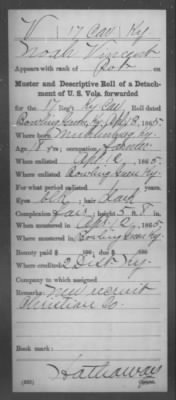 V 17 Cav Ky
Noah Vincent
Appears with rank of Pvt on
Muster and Descriptive Roll of a Detach-
ment of U. S. Vols. forwarded
for the 17 Reg't Ky Cav. Roll dated
Bowling Green, Ky. Apl 3, 1865
Where born Muhlenberg Ky
Age 18 y'rs; occupation Farmer
When enlisted Apl 2, 1865
Where enlisted Bowling Green Ky.
For what period enlisted years.
Eyes Blk; hair Dark
Complexion Fair; height 5 ft. 8 in.
When mustered in Apl 2, 1865
Where mustered in Bowling Green Ky.
Bounty paid $ 100; due $ 100
Where credited 2 Dist Ky.
Company to which assigned
Remarks: New recruit
Christian Co.
Book mark:
Hathaway
Copyist.